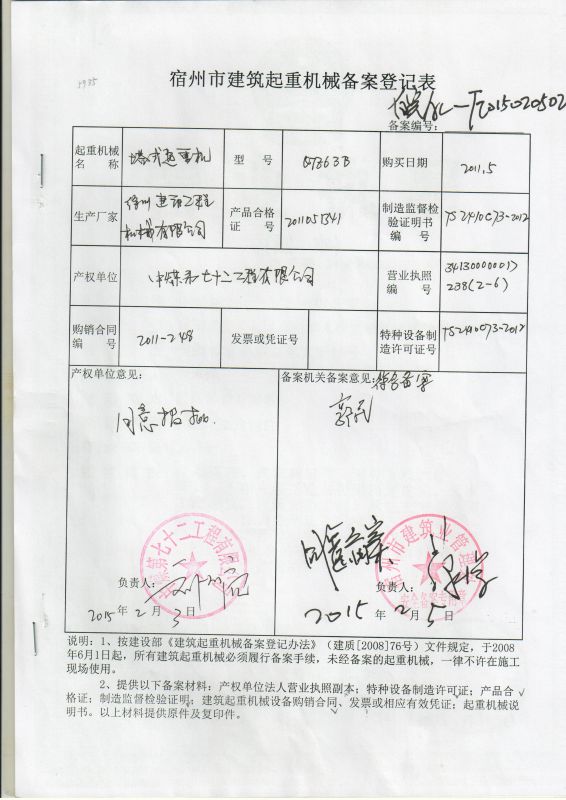 宿州市建筑起重机械备案登记表
备案编号:
起重机械名称 塔式起重机 型号 QTZ63B 购买日期 2011.5
生产厂家 徐州建筑工程机械有限公司 产品合格证号 2011051341 制造监督检验证明书编号 TS2410C73-2012
产权单位 中煤第七十二工程有限公司 营业执照编号 341300000017238(2-6)
购销合同编号 2011-248 发票或凭证号 特种设备制造许可证号 TS2410C73-2012
产权单位意见:
同意报批.
备案机关备案意见:符合备案
第七十二工程有限
宿州市建筑业管理
负责人:
2015年2月3日
负责人:
2015年2月5日
说明:1、按建设部《建筑起重机械备案登记办法》(建质[2008]76号)文件规定,于2008
年6月1日起,所有建筑起重机械必须履行备案手续,未经备案的起重机械,一律不许在施工
现场使用。
2、提供以下备案材料:产权单位法人营业执照副本;特种设备制造许可证;产品合
格证;制造监督检验证明;建筑起重机械设备购销合同、发票或相应有效凭证;起重机械说
明书。以上材料提供原件及复印件。